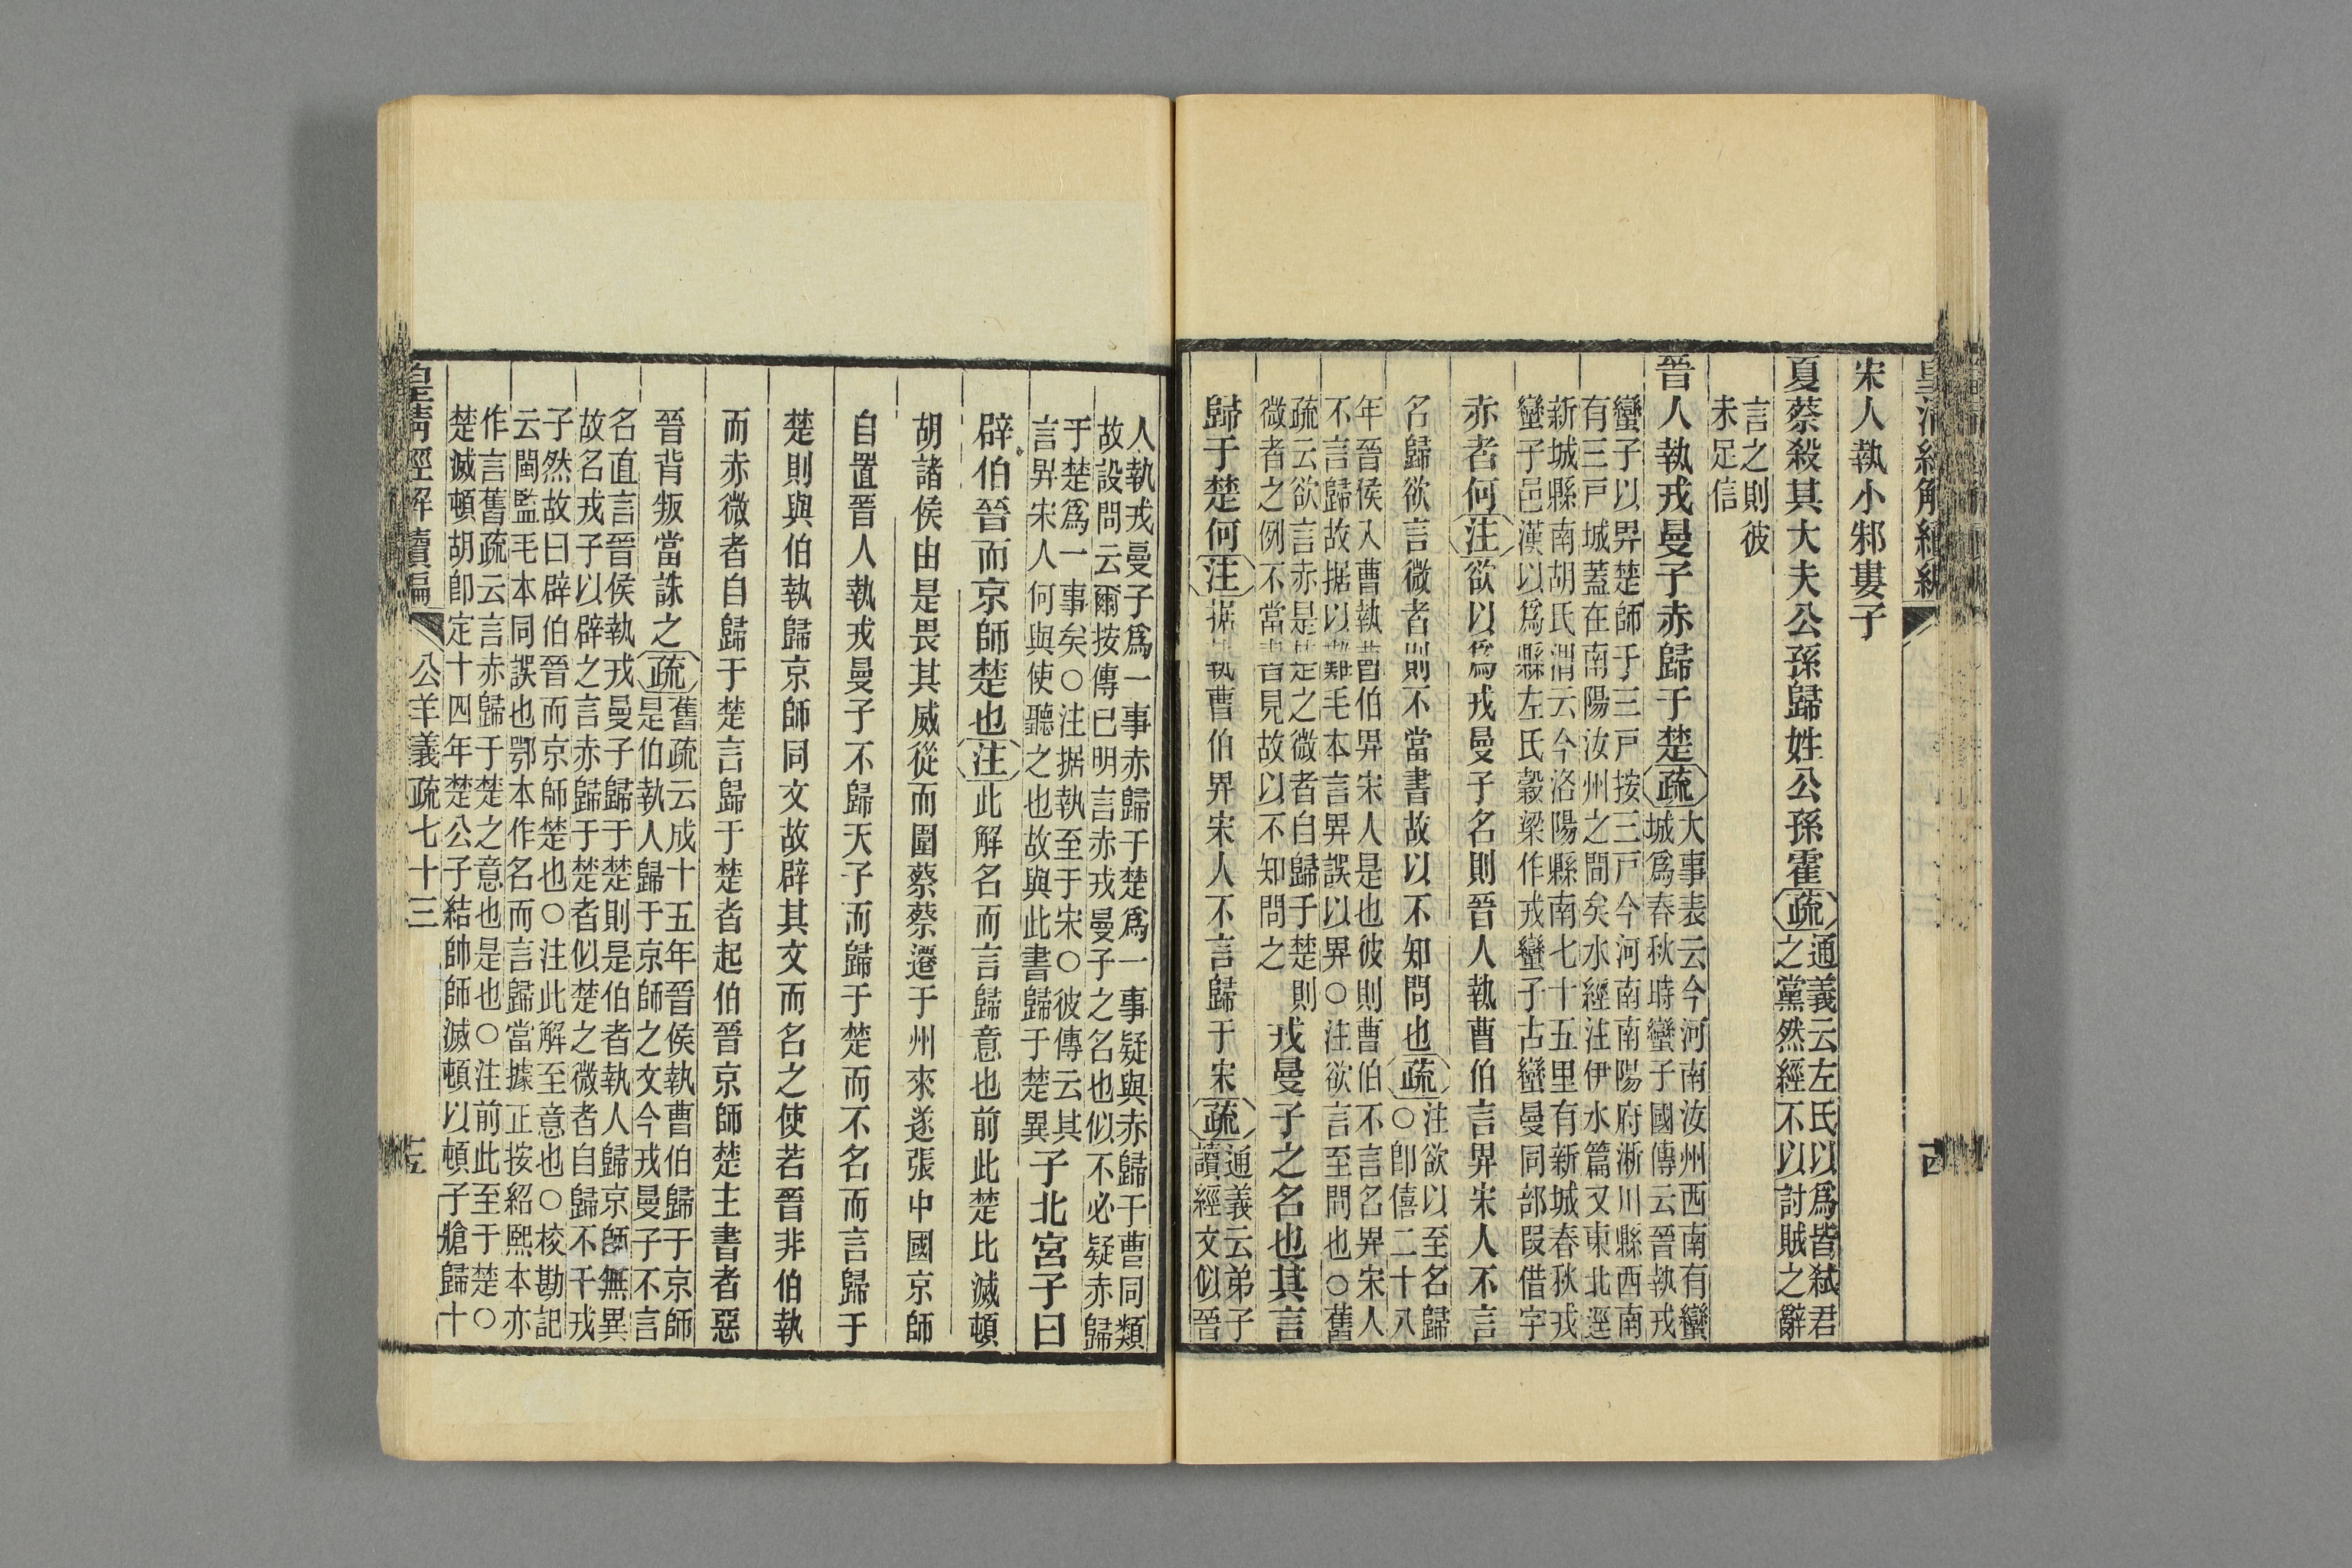 宋人執小邾婁子
夏蔡殺其大夫公孫歸姓公孫霍疏通義云左氏以爲皆弑君
之黨然經不以討賊之辭
言之則彼
未足信
晉人執戎曼子赤歸于楚疏大事表云今河南汝州西南有蠻
城爲春秋時蠻子國傳云晉執戎
蠻子以畀楚師于三戸按三戸今河南南陽府淅川縣西南
有三戸城蓋在南陽汝州之間矣水經注伊水篇又東北逕
新城縣南胡氏渭云今洛陽縣南七十五里有新城春秋戎
蠻子邑漢以爲縣左氏穀梁作戎蠻子古蠻曼同部叚借字
赤者何注欲以爲戎曼子名則晉人執曹伯言畀宋人不言
名歸欲言微者則不當書故以不知問也疏注欲以至名歸
○卽僖二十八
年晉侯入曹執曹伯畀宋人是也彼則曹伯不言名畀宋人
不言歸故据以難毛本言畀誤以畀○注欲言至問也○舊
疏云欲言赤是楚之微者自歸于楚則
微者之例不當書見故以不知問之
戎曼子之名也其言
歸于楚何注据執曹伯畀宋人不言歸于宋疏通義云弟子
讀經文似晉
人執戎曼子爲一事赤歸于楚爲一事疑與赤歸于曹同類
故設問云爾按傳已明言赤戎曼子之名也似不必疑赤歸
于楚爲一事矣○注据執至于宋○彼傳云其
言畀宋人何與使聽之也故與此書歸于楚異
子北宮子曰
辟伯晉而京師楚也注此解名而言歸意也前此楚比滅頓
胡諸侯由是畏其威從而圍蔡蔡遷于州來遂張中國京師
自置晉人執戎曼子不歸天子而歸于楚而不名而言歸于
楚則與伯執歸京師同文故辟其文而名之使若晉非伯執
而赤微者自歸于楚言歸于楚者起伯晉京師楚主書者惡
晉背叛當誅之疏舊疏云成十五年晉侯執曹伯歸于京師
是伯執人歸于京師之文今戎曼子不言
名直言晉侯執戎曼子歸于楚則是伯者執人歸京師無異
故名戎子以辟之言赤歸于楚者似楚之微者自歸不干戎
子然故曰辟伯晉而京師楚也○注此解至意也○校勘記
云閩監毛本同誤也鄂本作名而言歸當據正按紹熙本亦
作言舊疏云言赤歸于楚之意也是也○注前此至于楚○
楚滅頓胡卽定十四年楚公子結帥師滅頓以頓子牄歸十
皇清經解續編 公羊義疏七十三